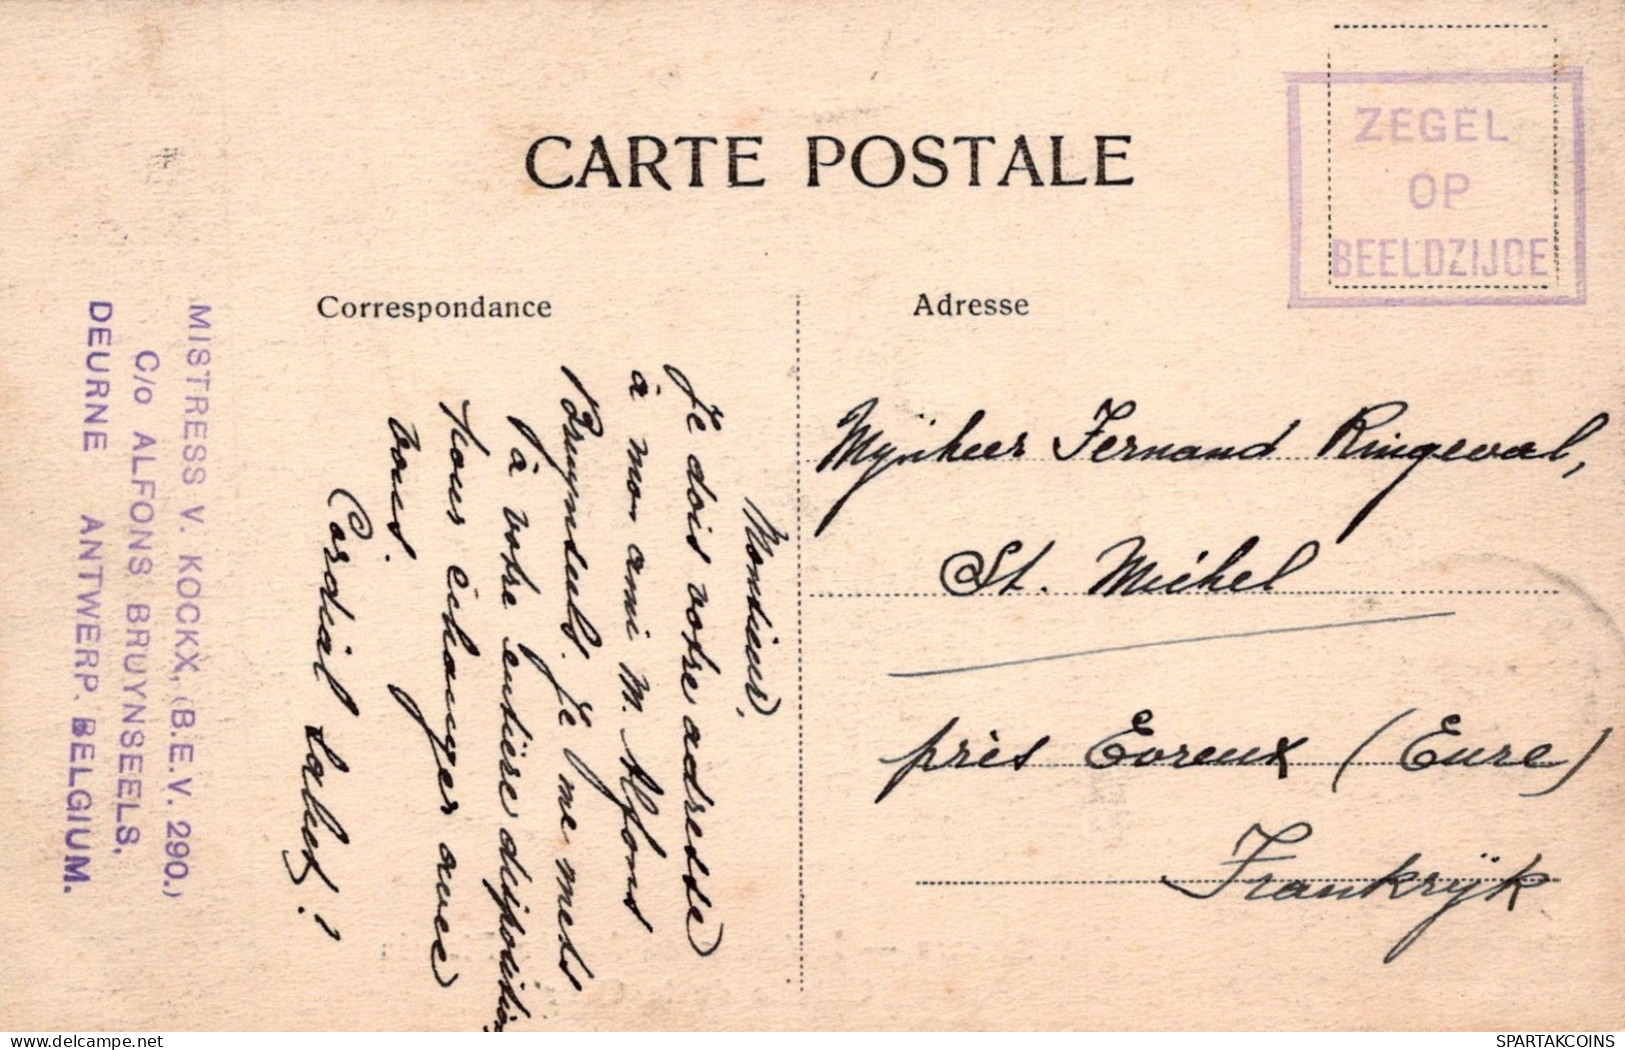 CARTE POSTALE
ZEGEL
OP
BEELDZIJDE
Correspondance
Adresse
Monsieur,
Je dois votre adresse
à mon ami M. Alfons
Bruynseels. Je me mets
à votre entière disposition
pour échanger avec
vous.
Cordial salut!
Mijnheer Fernand Ringeval,
St. Michel
près Evreux (Eure)
Frankrijk
MISTRESS V. KOCKX, (B.E.V. 290.)
C/o ALFONS BRUYNSEELS,
DEURNE ANTWERP. BELGIUM.
delcampe.net
SPARTAKCOINS